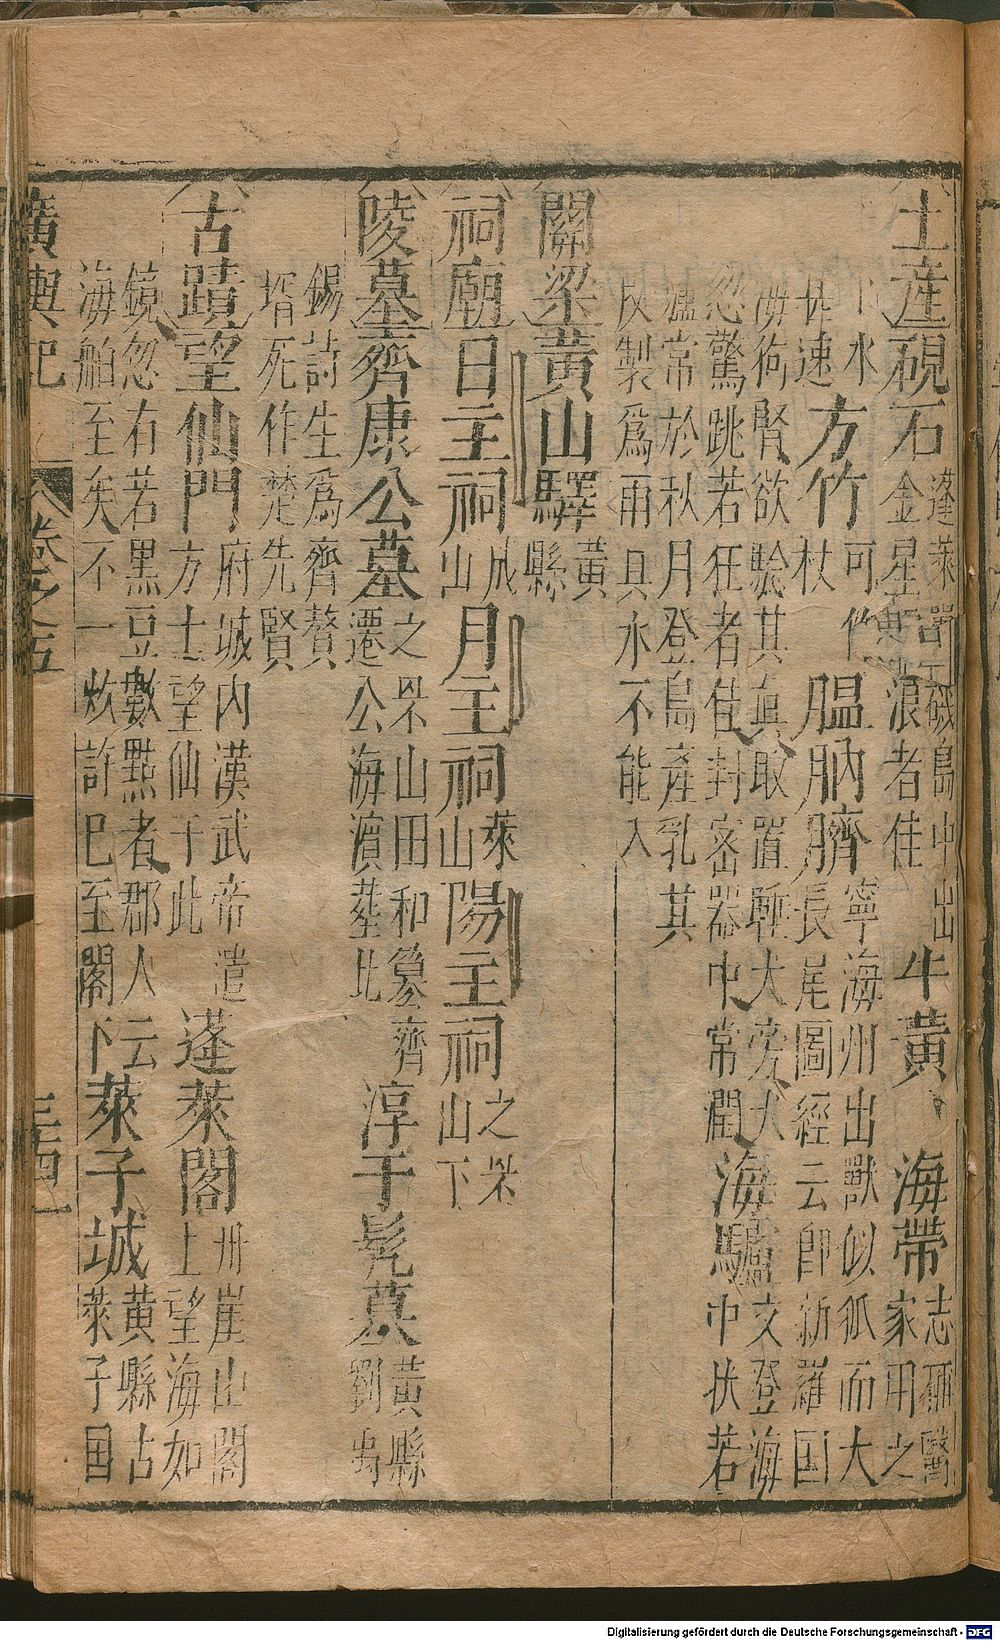 土産硯石蓬萊閣下磯島中出金星黄浪者佳牛黄海帶志稱醫家用之
下水方竹可作杖膃肭臍寧海州出獸似狐而大長尾圖經云即新羅国
海狗腎欲驗其真取置睡犬旁犬忽驚跳若狂者佳封密器中常潤海驢文登海中狀若
驢常於秋月登島產乳其皮製爲雨具水不能入
關梁黄山驛黄縣
祠廟日主祠成山月主祠萊山陽主祠之罘山下
陵墓齊康公墓之罘山田和簒齊遷公海濱葬此淳于髠墓黄縣劉禹
錫詩生爲齊贅壻死作楚先賢
古蹟望仙門府城内漢武帝遣方士望仙于此蓬萊閣丹崖山閣上望海如
鏡忽有若黒豆數點者郡人云海舶至矣不一炊許已至閣下萊子城黄縣古萊子国
廣輿記 卷之五 三四一
Digitalisierung gefördert durch die Deutsche Forschungsgemeinschaft - DFG